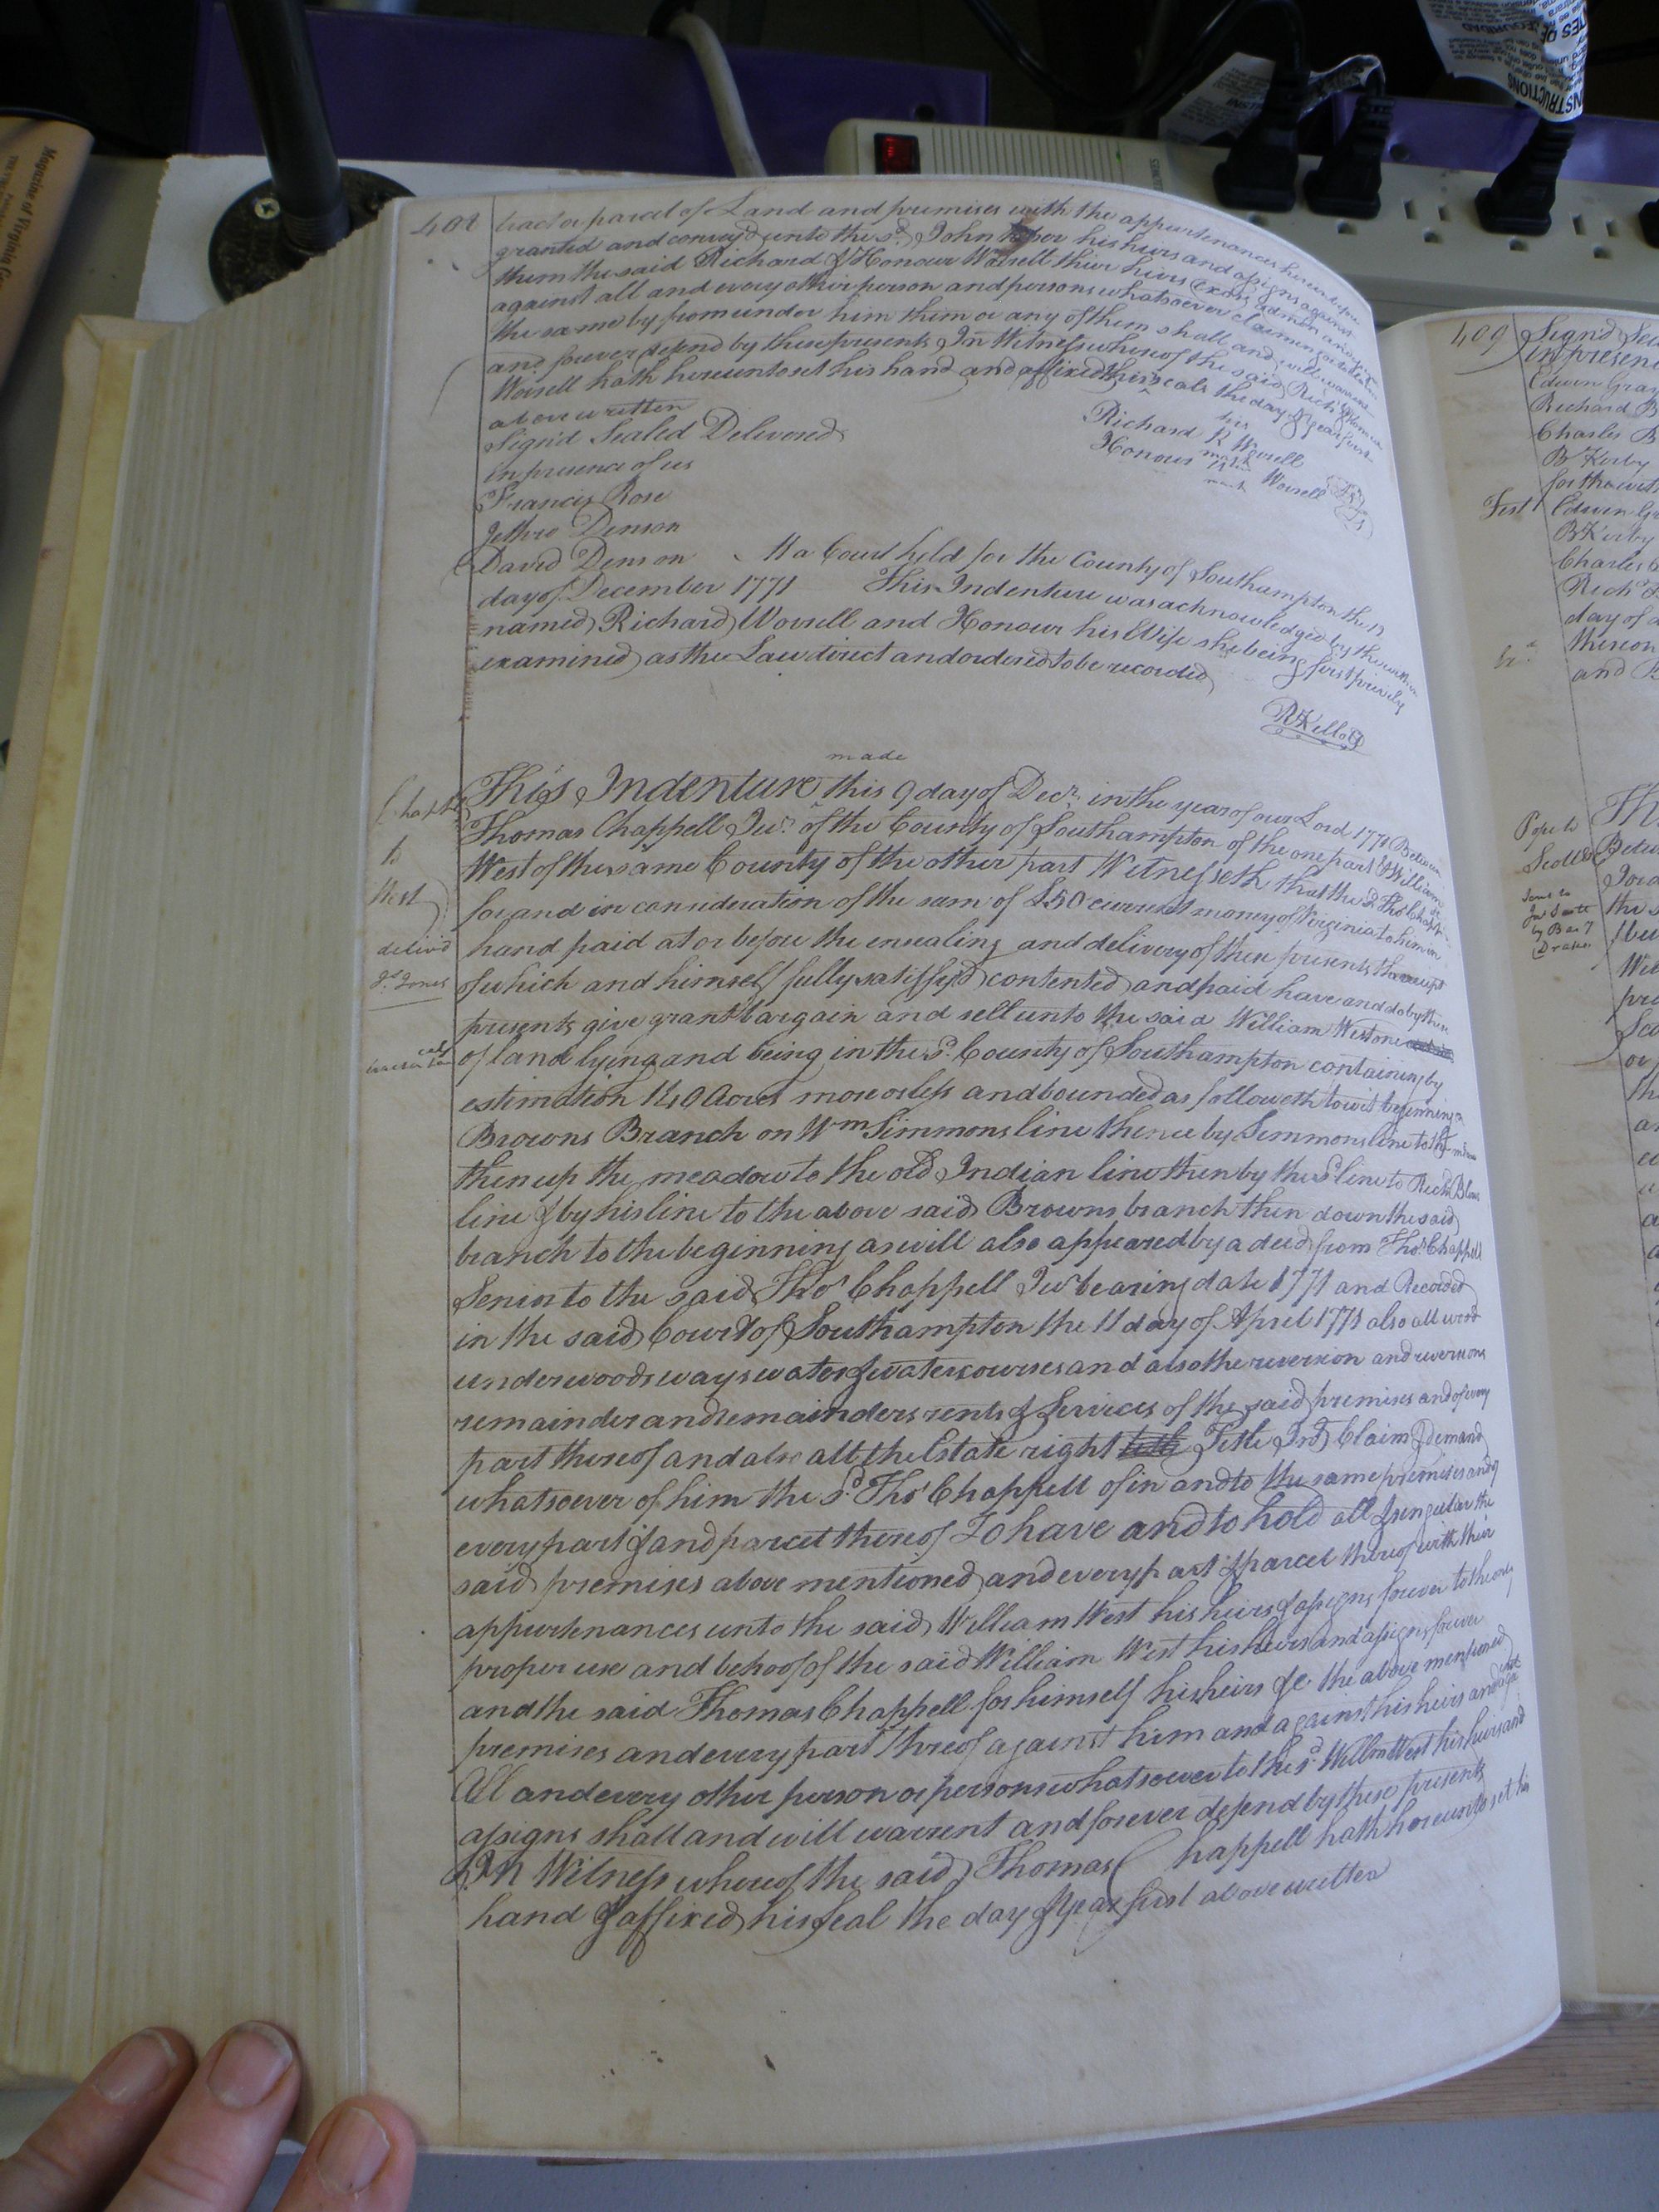 408
tract or parcel of Land and premises with the appurtenances hereunto
granted and convey'd unto the sd. John his heirs and assigns against
them the said Richard & Honour Worrell thier heirs Exors admors and
against all and every other person and persons whatsoever claiming
the same by from under him them or any of them shall and will warrant
and forever defend by these presents In Witness whereof the said Richd & Honour
Worrell hath hereunto set his hand and affixed thir seals the day & year first
above written
Sign'd Sealed Delivered
in presence of us
Francis Rose
Jethro Denson
David Denson
his
Richard R Worrell
mark
Honour Worrell
mark
At a Court held for the County of Southampton the 12
day of December 1771 This Indenture was acknowledged by the within
named Richard Worrell and Honour his Wife she being first privily
examined as the Law direct and ordered to be recorded
RKello
made
This Indenture this 9 day of Decr. in the year of our Lord 1771 Between
Thomas Chappell Junr. of the County of Southampton of the one part & William
West of the same County of the other part Witnesseth that the sd Thos Chappell
for and in consideration of the sum of £50 current money of Virginia to him in
hand paid at or before the ensealing and delivery of these presents the receipt
of which and himself fully satissfyd contented and paid have and do by these
presents give grant bargain and sell unto the said William West one
of land lying and being in the sd. County of Southampton containing by
estimation 140 Acres more or less and bounded as followeth to wit beginning
Browns Branch on Wm Simmons line thence by Simmons line to the
then up the meadow to the old Indian line then by the sd line to Richd
line & by his line to the above said Browns branch then down the said
branch to the beginning as will also appeared by a deed from Thos Chappell
Senior to the said Thos Chappell Junr bearing date 1771 and Recorded
in the said Court of Southampton the 11 day of April 1771 also all wood
underwoods ways waters & watercourses and also the reversion and reversions
remainder and remainders rents & Services of the said premises and of every
part thereof and also all the Estate right title Title Int Claim & demand
whatsoever of him the sd. Thos Chappell of in and to the same premises and
every part & and parcel thereof To have and to hold all & singular the
said premises above mentioned and every part & parcel thereof with their
appurtenances unto the said William West his heirs & assigns forever to the only
proper use and behoof of the said William West his heirs and assigns forever
and the said Thomas Chappell for himself his heirs &c the above mentioned
premises and every part threof against him and against his heirs and
All and every other person or persons whatsoever to the sd. Willm West his heirs and
assigns shall and will warrent and forever defend by these presents
In Witness whereof the said Thomas Chappell hath hereunto set his
hand & affixed his seal the day & year first above written
to
West
delivd
Jones
409
Signd
in presen
Edwin Gray
Richard B
Charles B
B Kirby
for the
Test
Edwin G
B Kirby
Charles
Richd
day of
and B
Pope to
Scott
Th
Betw
the
Wit
pre
or
INSTRUCTIONS
Magazine of Virginia